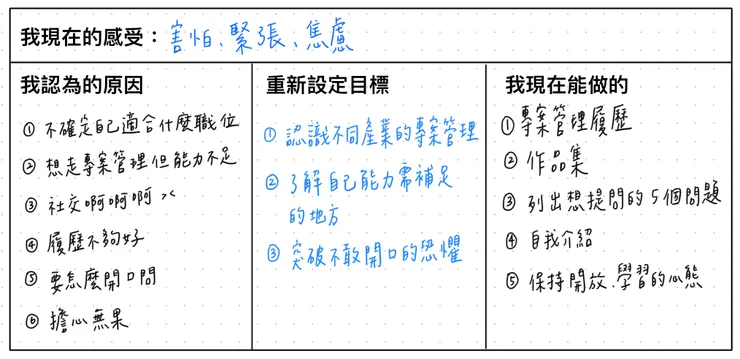 我現在的感受：害怕、緊張、焦慮
我認為的原因
① 不確定自己適合什麼職位
② 想走專案管理但能力不足
③ 社交啊啊啊
④ 履歷不夠好
⑤ 要怎麼開口問
⑥ 擔心無果
重新設定目標
① 認識不同產業的專案管理
② 了解自己能力需補足
的地方
③ 突破不敢開口的恐懼
我現在能做的
① 專案管理履歷
② 作品集
③ 列出想提問的5個問題
④ 自我介紹
⑤ 保持開放、學習的心態